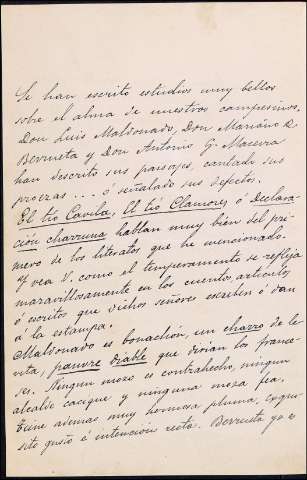 Se han escrito estudios muy bellos
sobre el alma de nuestros campesinos.
Don Luis Maldonado, Don Mariano D.
Berrueta y Don Antonio G. Maceira
han descrito sus paisajes, cantado sus
proezas ... ó señalado sus defectos.
El tío Cavila, El tío Clamores ó Declara-
ción charruna hablan muy bien del pri-
mero de los literatos que he mencionado.
Y vea V. como el temperamento se refleja
maravillosamente en los cuento, artículos
ó escritos que dichos señores escriben ó dan
á la estampa.
Maldonado es bonachón, un charro de le-
vita, pauvre diable que dirían los france-
ses. Ningun mozo es contrahecho, ningun
alcalde cacique y ninguna moza fea.
Tiene ademas muy hermosa pluma, exqui-
sito gusto é intencion recta. Berrueta ya